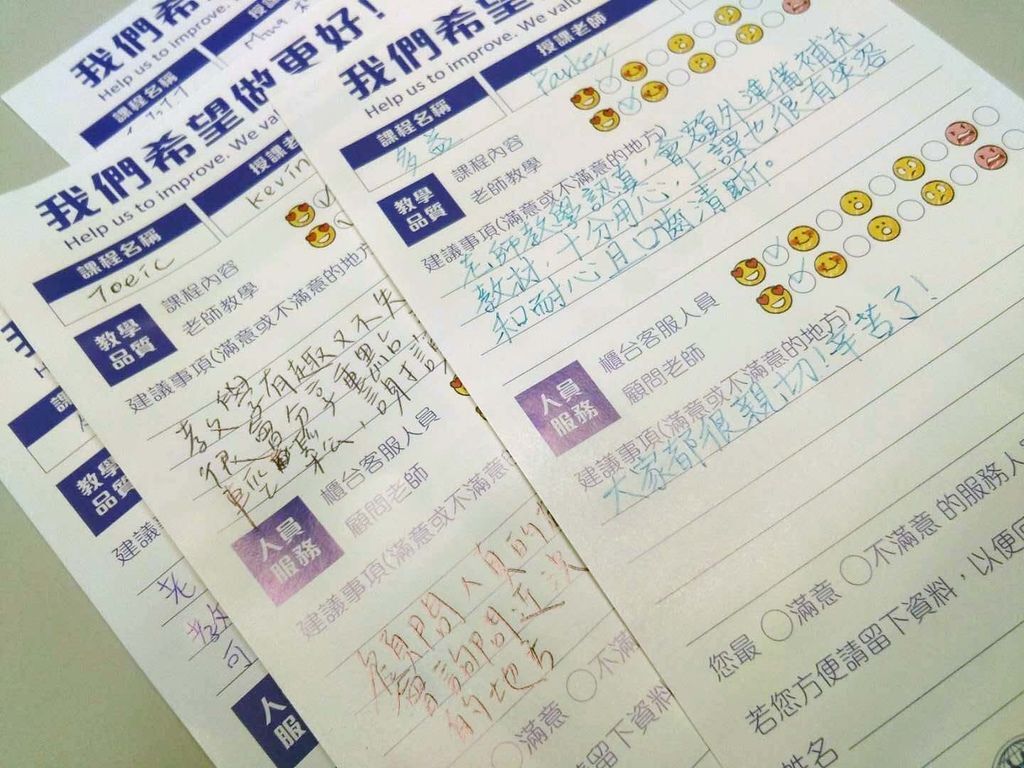 我們希
Help us to impro
課程名稱
授
我們希望做更好!
Help us to improve. We va
課程名稱
授課老
Toeic
Kevin
教學品質
課程內容
老師教學
建議事項(滿意或不滿意的地方
教學有趣又不失
很會分享重點
人員服務
櫃台客服人員
顧問老師
建議事項(滿意或不滿意
顧問人員的
會詢問近況
的地方
滿意
不滿
留下資料
我們希望
Help us to improve. We valu
課程名稱
授課老師
多益
Parker
教學品質
課程內容
老師教學
建議事項(滿意或不滿意的地方)
老師教學認真,會額外準備補充
教材,十分用心,上課也很有笑容
和耐心且口齒清晰。
人員服務
櫃台客服人員
顧問老師
建議事項(滿意或不滿意的地方)
大家都很親切!辛苦了!
您最 滿意 不滿意 的服務人
若您方便請留下資料,以便
姓名
我
H
教學品質
建議
老
教
可
人服